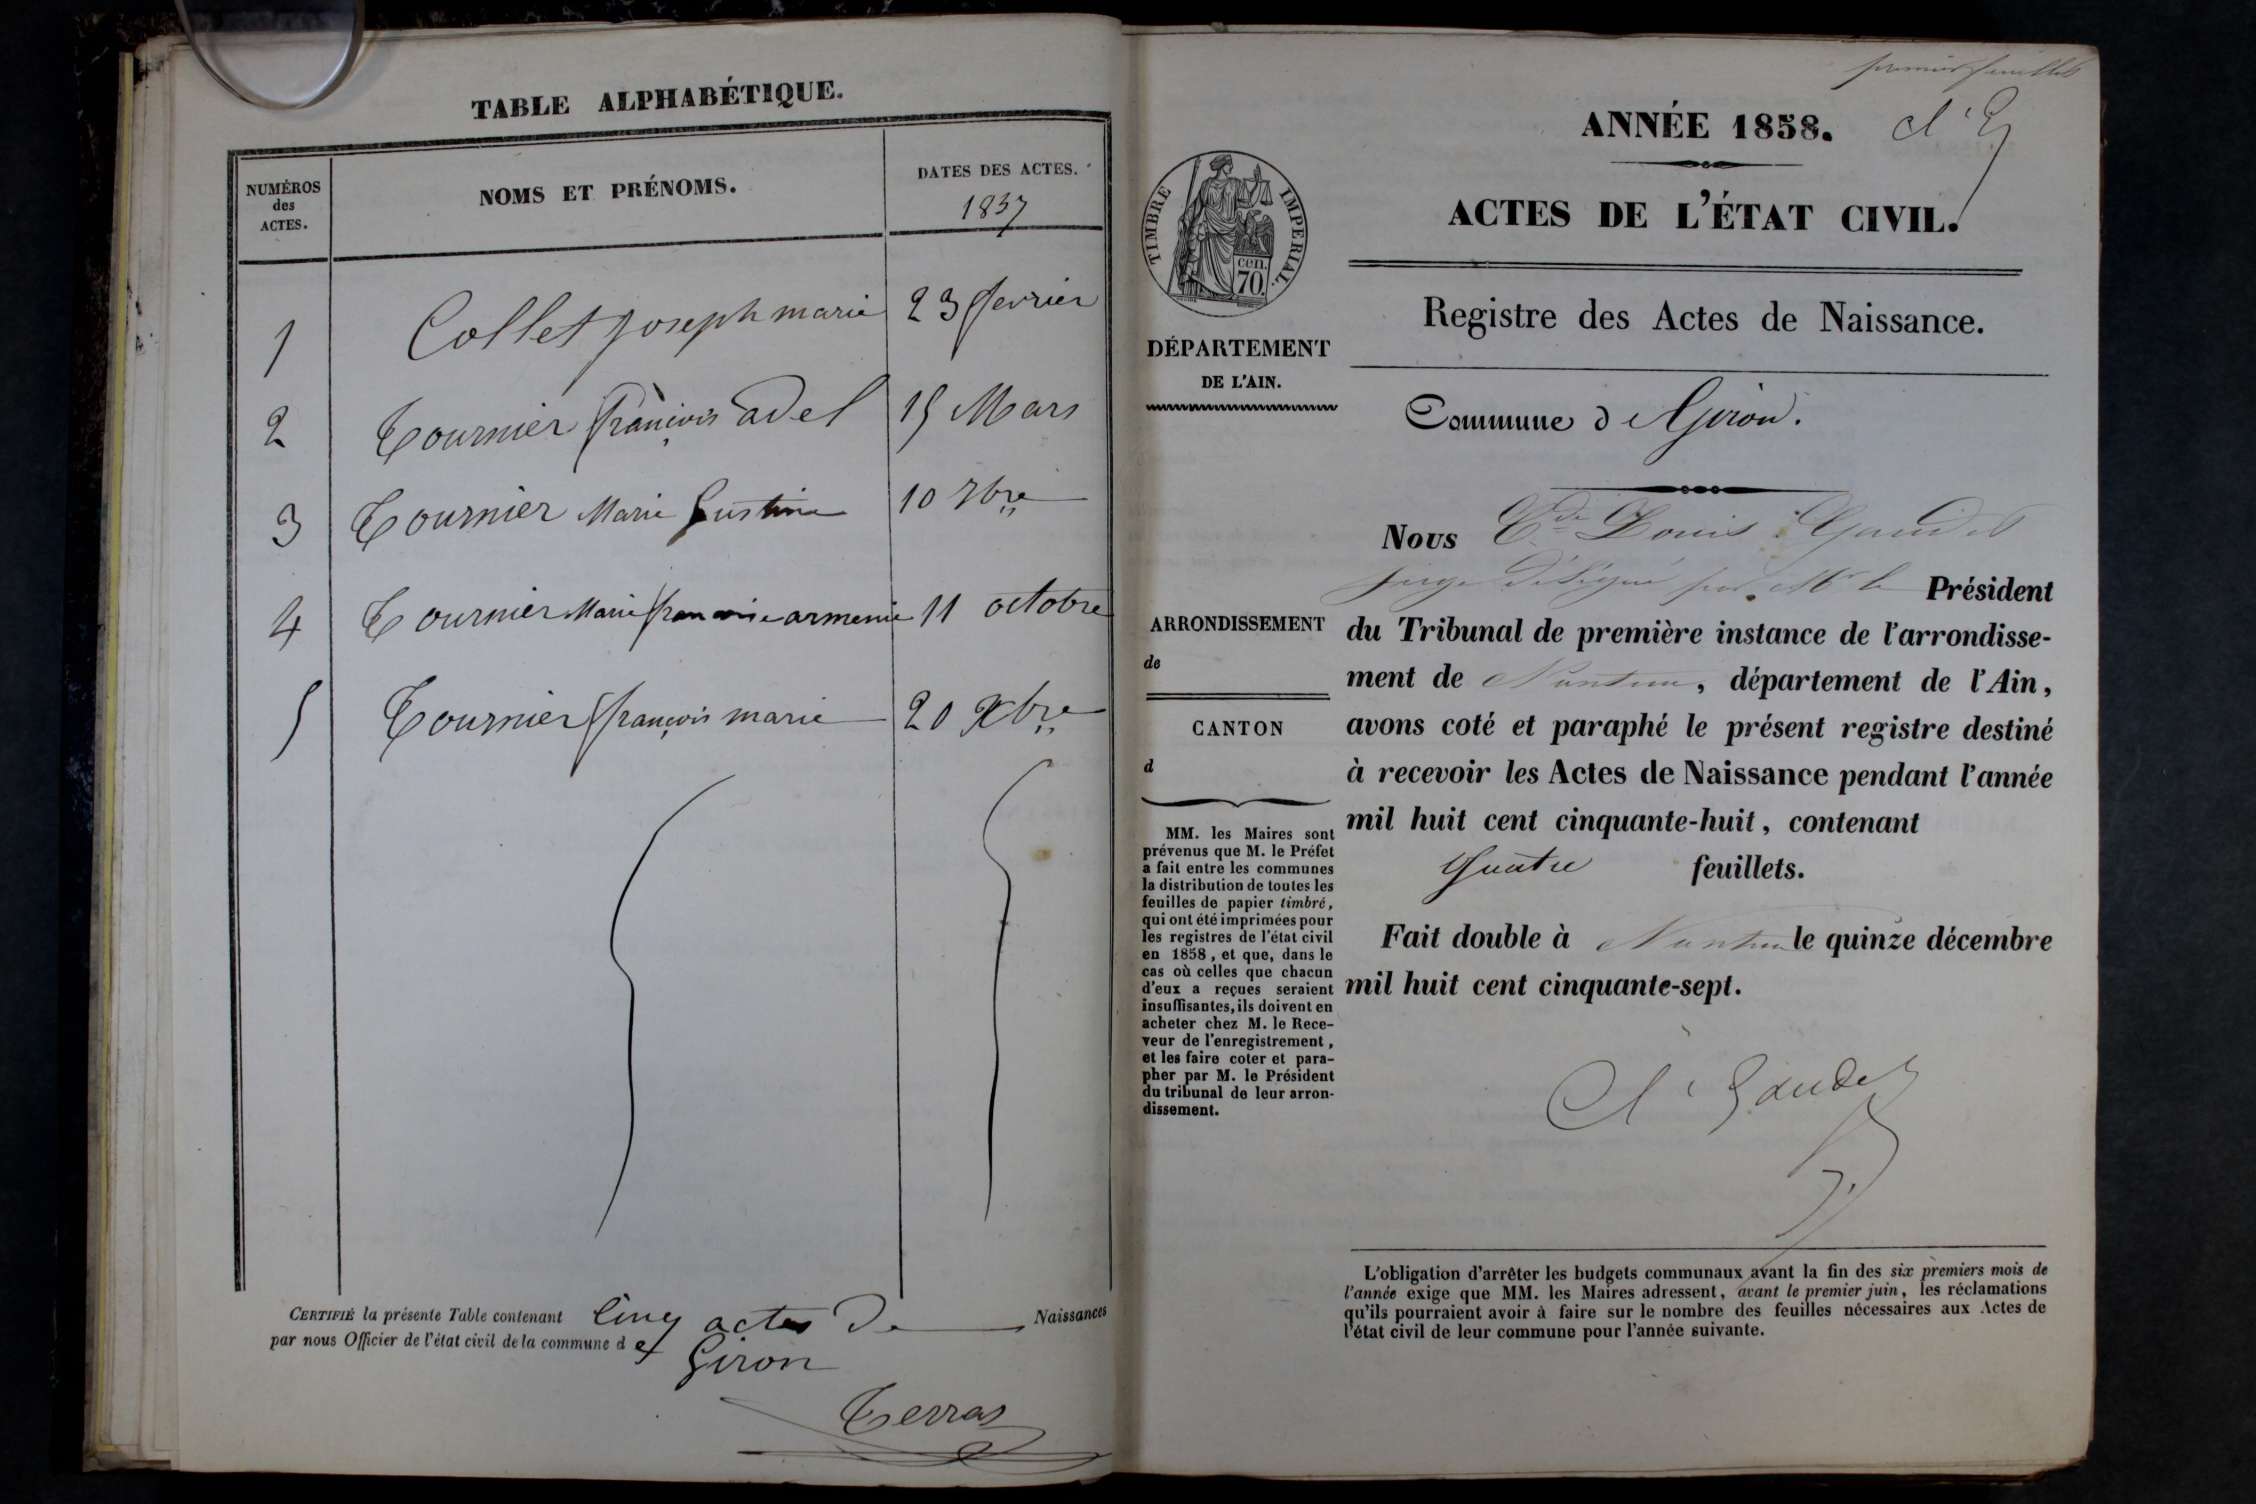 TABLE ALPHABÉTIQUE.
NUMÉROS
des
ACTES.
NOMS ET PRÉNOMS.
DATES DES ACTES.
1857
1 Collet joseph marie 23 fevrier
2 Tournier françois adel 15 Mars
3 Tournier Marie Justine 10 7bre
4 Tournier Marie francoise armenie 11 octobre
5 Tournier françois marie 20 Xbre
CERTIFIÉ la présente Table contenant Cinq actes De Naissances
par nous Officier de l'état civil de la commune de
Giron
Terras
premier feuillet
ANNÉE 1858.
ACTES DE L'ÉTAT CIVIL.
TIMBRE IMPERIAL.
cen.
70.
Registre des Actes de Naissance.
DÉPARTEMENT
DE L'AIN.
Commune d Giron.
Nous Louis Gaudet
juge délégué par Mr le Président
du Tribunal de première instance de l'arrondisse-
ment de Nantua, département de l'Ain,
avons coté et paraphé le présent registre destiné
à recevoir les Actes de Naissance pendant l'année
mil huit cent cinquante-huit, contenant
Quatre feuillets.
Fait double à Nantua le quinze décembre
mil huit cent cinquante-sept.
Gaudet
ARRONDISSEMENT
de
CANTON
d
MM. les Maires sont
prévenus que M. le Préfet
a fait entre les communes
la distribution de toutes les
feuilles de papier timbré,
qui ont été imprimées pour
les registres de l'état civil
en 1858, et que, dans le
cas où celles que chacun
d'eux a reçues seraient
insuffisantes, ils doivent en
acheter chez M. le Rece-
veur de l'enregistrement,
et les faire coter et para-
pher par M. le Président
du tribunal de leur arron-
dissement.
L'obligation d'arrêter les budgets communaux avant la fin des six premiers mois de
l'année exige que MM. les Maires adressent, avant le premier juin, les réclamations
qu'ils pourraient avoir à faire sur le nombre des feuilles nécessaires aux Actes de
l'état civil de leur commune pour l'année suivante.